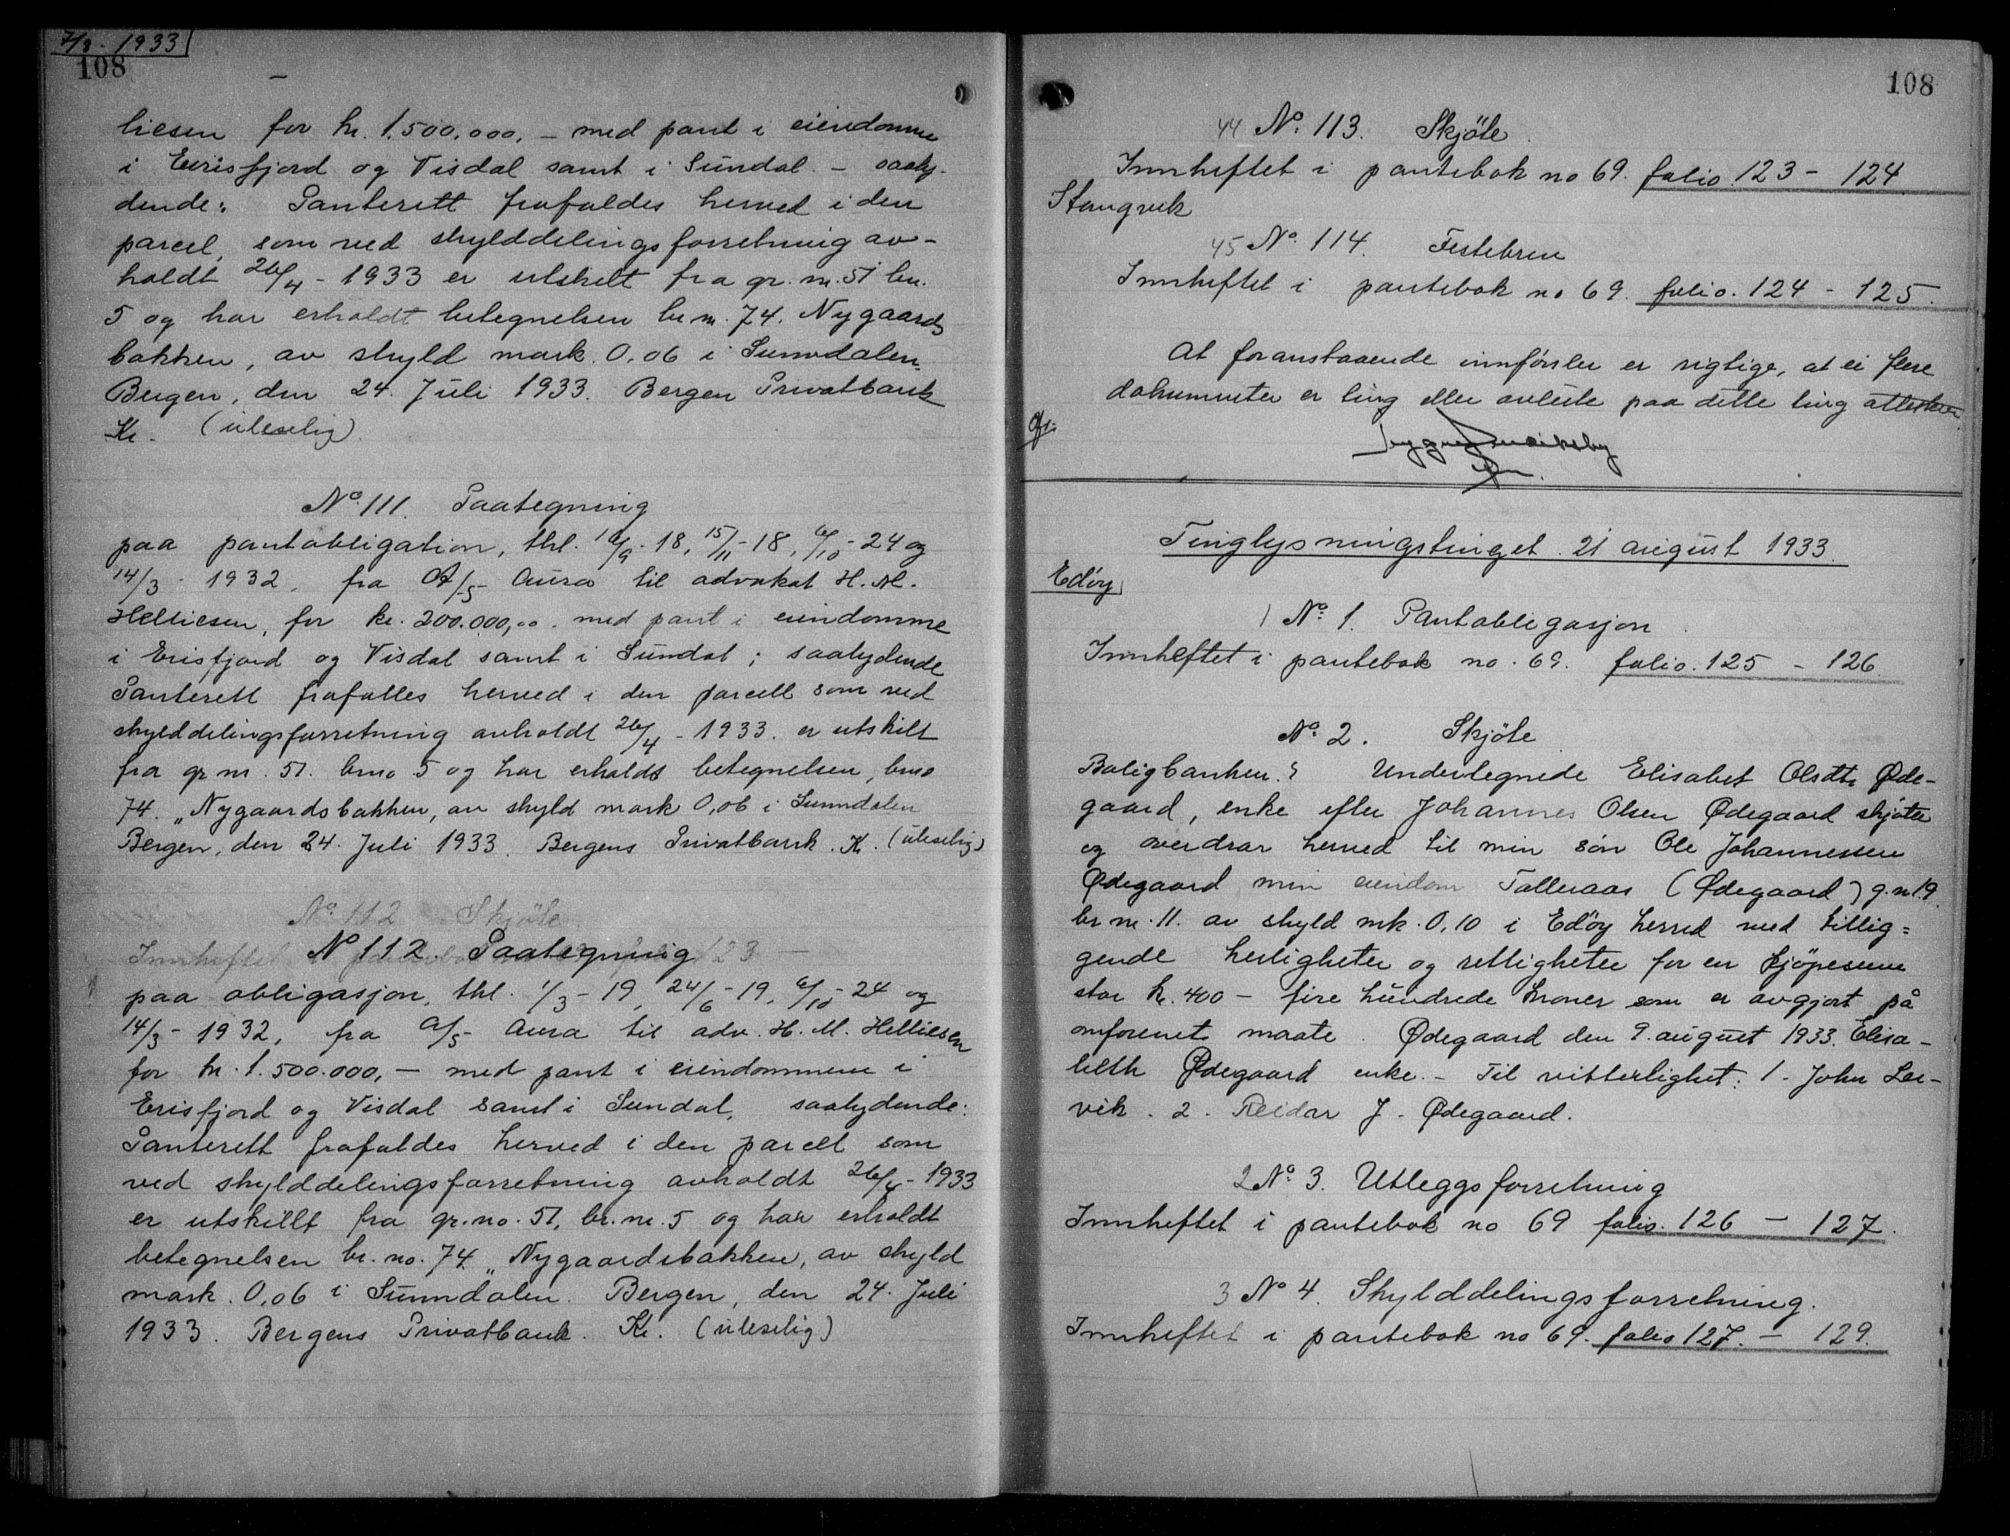 7/8 - 1933
108
liesen for kr. 1.500.000, - med pant i eiendomme
i Eirisfjord og Visdal samt i Sundal - saaly-
dende: Panterett frafaldes herved i den
parcel, som ved skylddelingsforretning av-
holdt 26/4 - 1933 er utskilt fra gr. nr. 51 br.
5 og har erholdt betegnelsen br nr. 74. Nygaards
bakken, av skyld mark. 0,06 i Sunndalen.
Bergen, den 24. Juli 1933. Bergen Privatbank
Kr. (uleselig).
No. 111. Paategning
paa pantobligation, thl. 18, 15/11 - 18, 6/10 - 24 og
14/3 - 1932, fra A/S Aura til advokat H. M.
Helliesen, for kr. 200.000,00. med pant i eiendomme
i Erisfjord og Visdal samt i Sundal; saalydende
Panterett frafalles herved i den parcell som ved
skylddelingsforretning avholdt 26/4 - 1933. er utskilt
fra gr nr. 51. brno 5 og har erholdt betegnelsen, brno
74. „Nygaardsbakken, av skyld mark 0,06 i Sunndalen
Bergen, den 24. Juli 1933. Bergens Privatbank. Kr. (uleselig)
No. 112 Skjøte
Innheftet 123 -
No 112. Paategning
paa obligasjon, thl. 1/3 - 19, 24/6 - 19, 6/10 - 24 og
14/3 - 1932, fra A/S Aura til adv. H. M. Helliesen
for kr. 1.500.000, - med pant i eiendommene i
Erisfjord og Visdal samt i Sundal, saalydende:
Panterett frafaldes herved i den parcell som
ved skylddelingsforretning avholdt 26/4 - 1933
er utskillt fra gr. no. 51, br. nr. 5 og har erholdt
betegnelsen br. no. 74. „Nygaardsbakken, av skyld
mark. 0,06 i Sunndalen. Bergen, den 24. Juli
1933. Bergens Privatbank. Kr. (uleselig)
108
44 No. 113. Skjöte.
Innheftet i pantebok no 69. folio 123 - 124.
Stangvik
45 No. 114. Festebrev
Innheftet i pantebok no 69. folio. 124 - 125.
At foranstaaende innførsler er rigtige, at ei flere
dokumenter er ting eller avleste paa dette ting attesteres.
Tinglysningstinget 21 august 1933.
Edøy
1 No. 1. Pantobligasjon.
Innheftet i pantebok no. 69. folio. 125 - 126.
No 2. Skjöte
Boligbanken. Undertegnede Elisabet Olsdtr Øde-
gaard, enke efter Johannes Olsen Ødegaard skjøter
og overdrar herved til min søn Ole Johannessen
Ødegaard min eiendom Talleraas (Ødegaard) g.nr. 19.
br nr. 11. av skyld mk. 0,10 i Edøy herred med tillig=
gende herligheter og rettigheter for en kjöpesum
stor kr. 400 - fire hundrede kroner som er avgjort på
omforenet maate. Ødegaard den 9. august 1933. Elisa-
beth Ødegaard enke. - Til vitterlighet: 1. John Lor-
vik. 2. Reidar J. Ødegaard.
2 No. 3. Utleggsforretning
Innheftet i pantebok no 69 folio. 126 - 127.
3 No 4. Skylddelingsforretning.
Innheftet i pantebok no 69. folio 127. - 129.